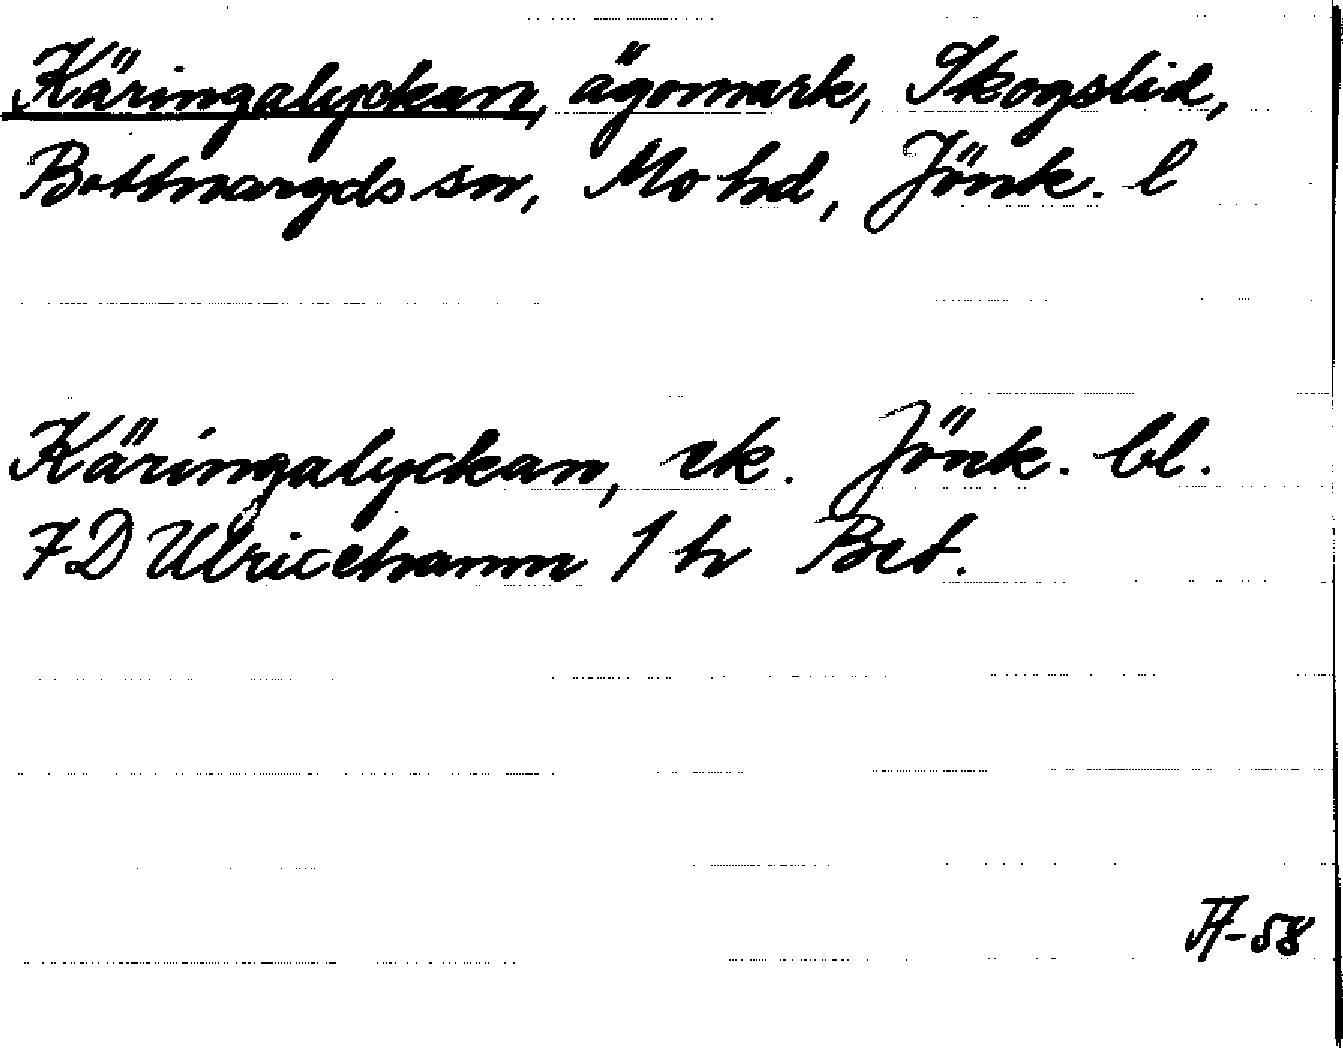 Käringalyckan, ägomark, Skogslid,
Bottnaryds sn, Mo hd, Jönk. l
Käringalyckan, ek. Jönk. bl.
7D Ulricehamn 1 h Bet.
-58